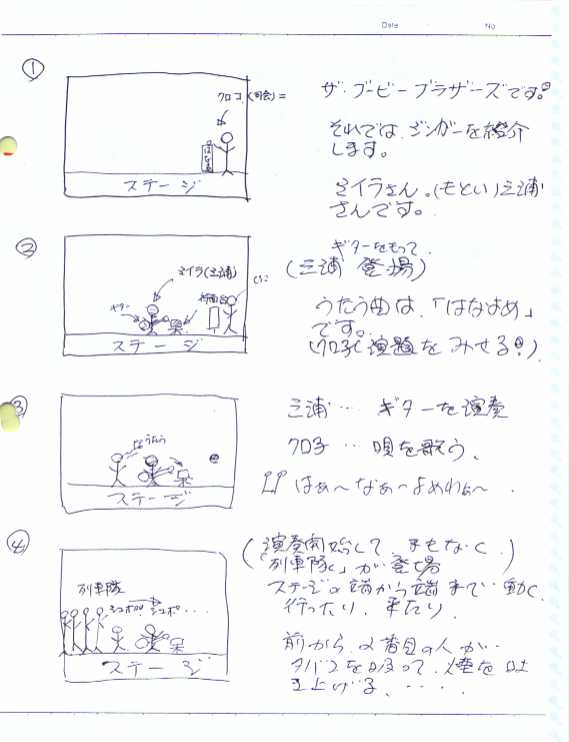 Date No
①
クロコ(司会)=
はなよめ
ステージ
ザ・ブービーブラザーズです。
それでは、シンガーを紹介
します。
ミイラさん。(もとい)三浦
さんです。
②
ミイラ(三浦)
ギター
ステージ
ギターをもって、
(三浦 登場)
うたう曲は、「はなよめ」
です。
(クロ子は演題をみせる。)
③
うたう
ステージ
三浦… ギターを演奏
クロ子 … 唄を歌う、
はぁ～なぁ～よめわぁ～
④
列車隊
シュポポ
シュポ・・・
ステージ
(演奏開始して、まもなく、)
「列車隊」が登場
ステージの端から端まで動く
行ったり、来たり、
前から、2番目の人が…
タバコを吸って、煙を吐
き上げる、・・・・